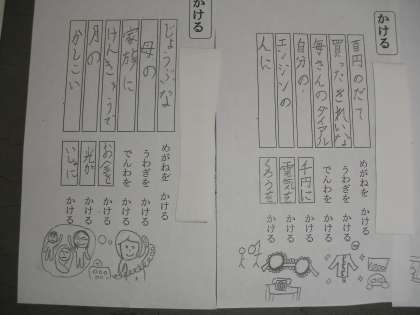 かける
百円のだて めがねを かける
買ったきれいな うわぎを かける
母さんのダイヤル でんわを かける
自分の 千円に かける
エンジンの 電気を かける
人に くろうを かける
かける
じょうぶな めがねを かける
母の うわぎを かける
家族に でんわを かける
けんきゅうで お金を かける
月の 光が かける
かしこい いしゃに かける